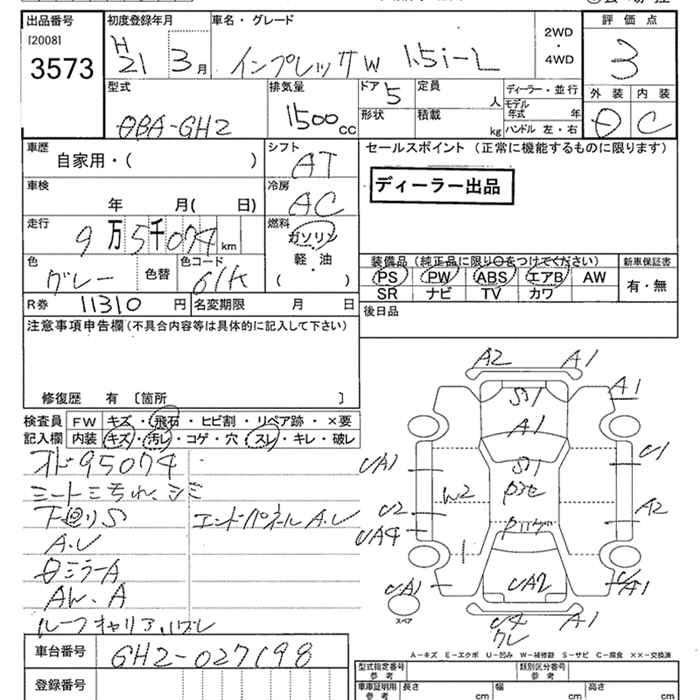 出品番号 初度登録年月 車名・グレード 評価点
[2008] H 2WD
3573 21 3月 インプレッサW 1.5i-L ・ 3
4WD
型式 排気量 ドア 5 定員 人 ディーラー・並行 外装 内装
モデル年式 年
1500cc 形状 積載 kg ハンドル 左・右 C
車歴 シフト セールスポイント (正常に機能するものに限ります)
自家用・( ) AT
ディーラー出品
車検 冷房
年 月( 日) AC
走行 燃料
9万5千074km ガソリン
軽・油
( )
装備品 (純正品に限り○をつけてください) 新車保証書
PS PW ABS エアB AW 有・無
SR ナビ TV カワ
色 グレー 色替 色コード 61K
R券 11310円 名変期限 月 日 後日品
注意事項申告欄 (不具合内容等は具体的に記入して下さい)
修復歴 有 〔箇所 〕
検査員 FW キズ・飛石・ヒビ割・リペア跡・×要
記入欄 内装 キズ・汚レ・コゲ・穴・スレ・キレ・破レ
オド95074
下廻りS エンドパネルA.U
A.U
ミラーA
AW.A
ルーフキャリア
A2 A1
S1 A1
A1
UA1 S1 U1
W2
U2 A2
UA4
UA1 UA2 A1
スペア U4 A1
A-キズ E-エクボ U-凹み W-補修跡 S-サビ C-腐食 ××-交換済
車台番号 GH2-027198
登録番号
型式指定番号 参考 類別区分番号 参考
車庫証明用 参考 長さ cm 幅 cm 高さ cm